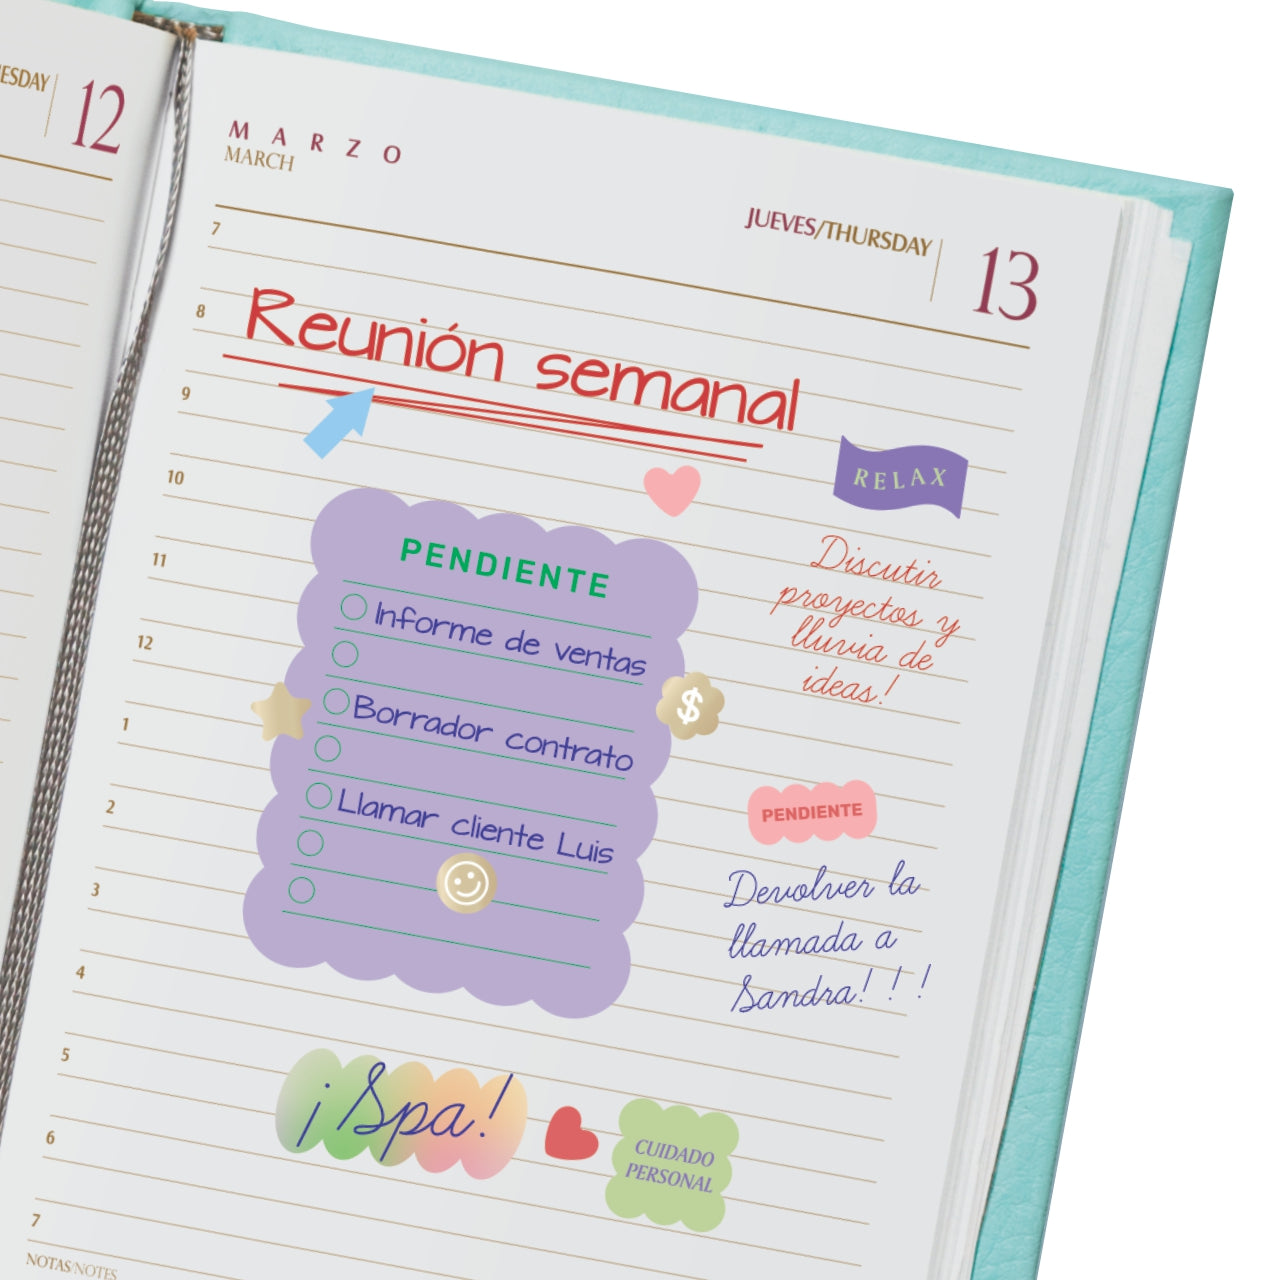 ESDAY
12
MARZO
MARCH
JUEVES/THURSDAY
13
7
8
Reunión semanal
9
RELAX
10
PENDIENTE
Discutir
proyectos y
lluvia de
ideas!
11
Informe de ventas
12
Borrador contrato
$
1
Llamar cliente Luis
2
PENDIENTE
3
Devolver la
llamada a
Sandra! ! !
4
5
¡Spa!
6
CUIDADO
PERSONAL
7
NOTAS/NOTES